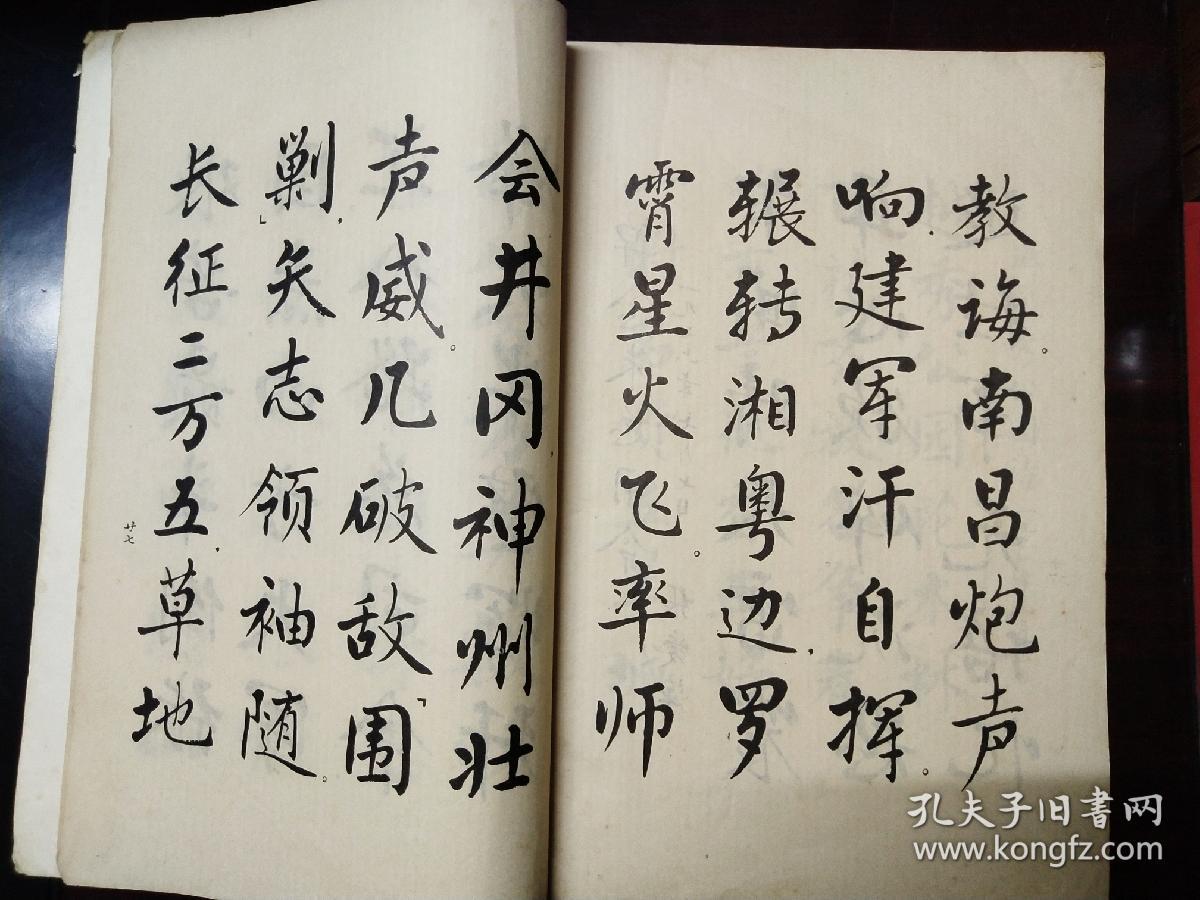 教诲。南昌炮声
响，建军汗自挥。
辗转湘粤边，罗
霄星火飞。率师
会井冈，神州壮
声威。几破敌「围
剿」，矢志领袖随。
长征二万五，草地
廿七
孔夫子旧书网
www.kongfz.com